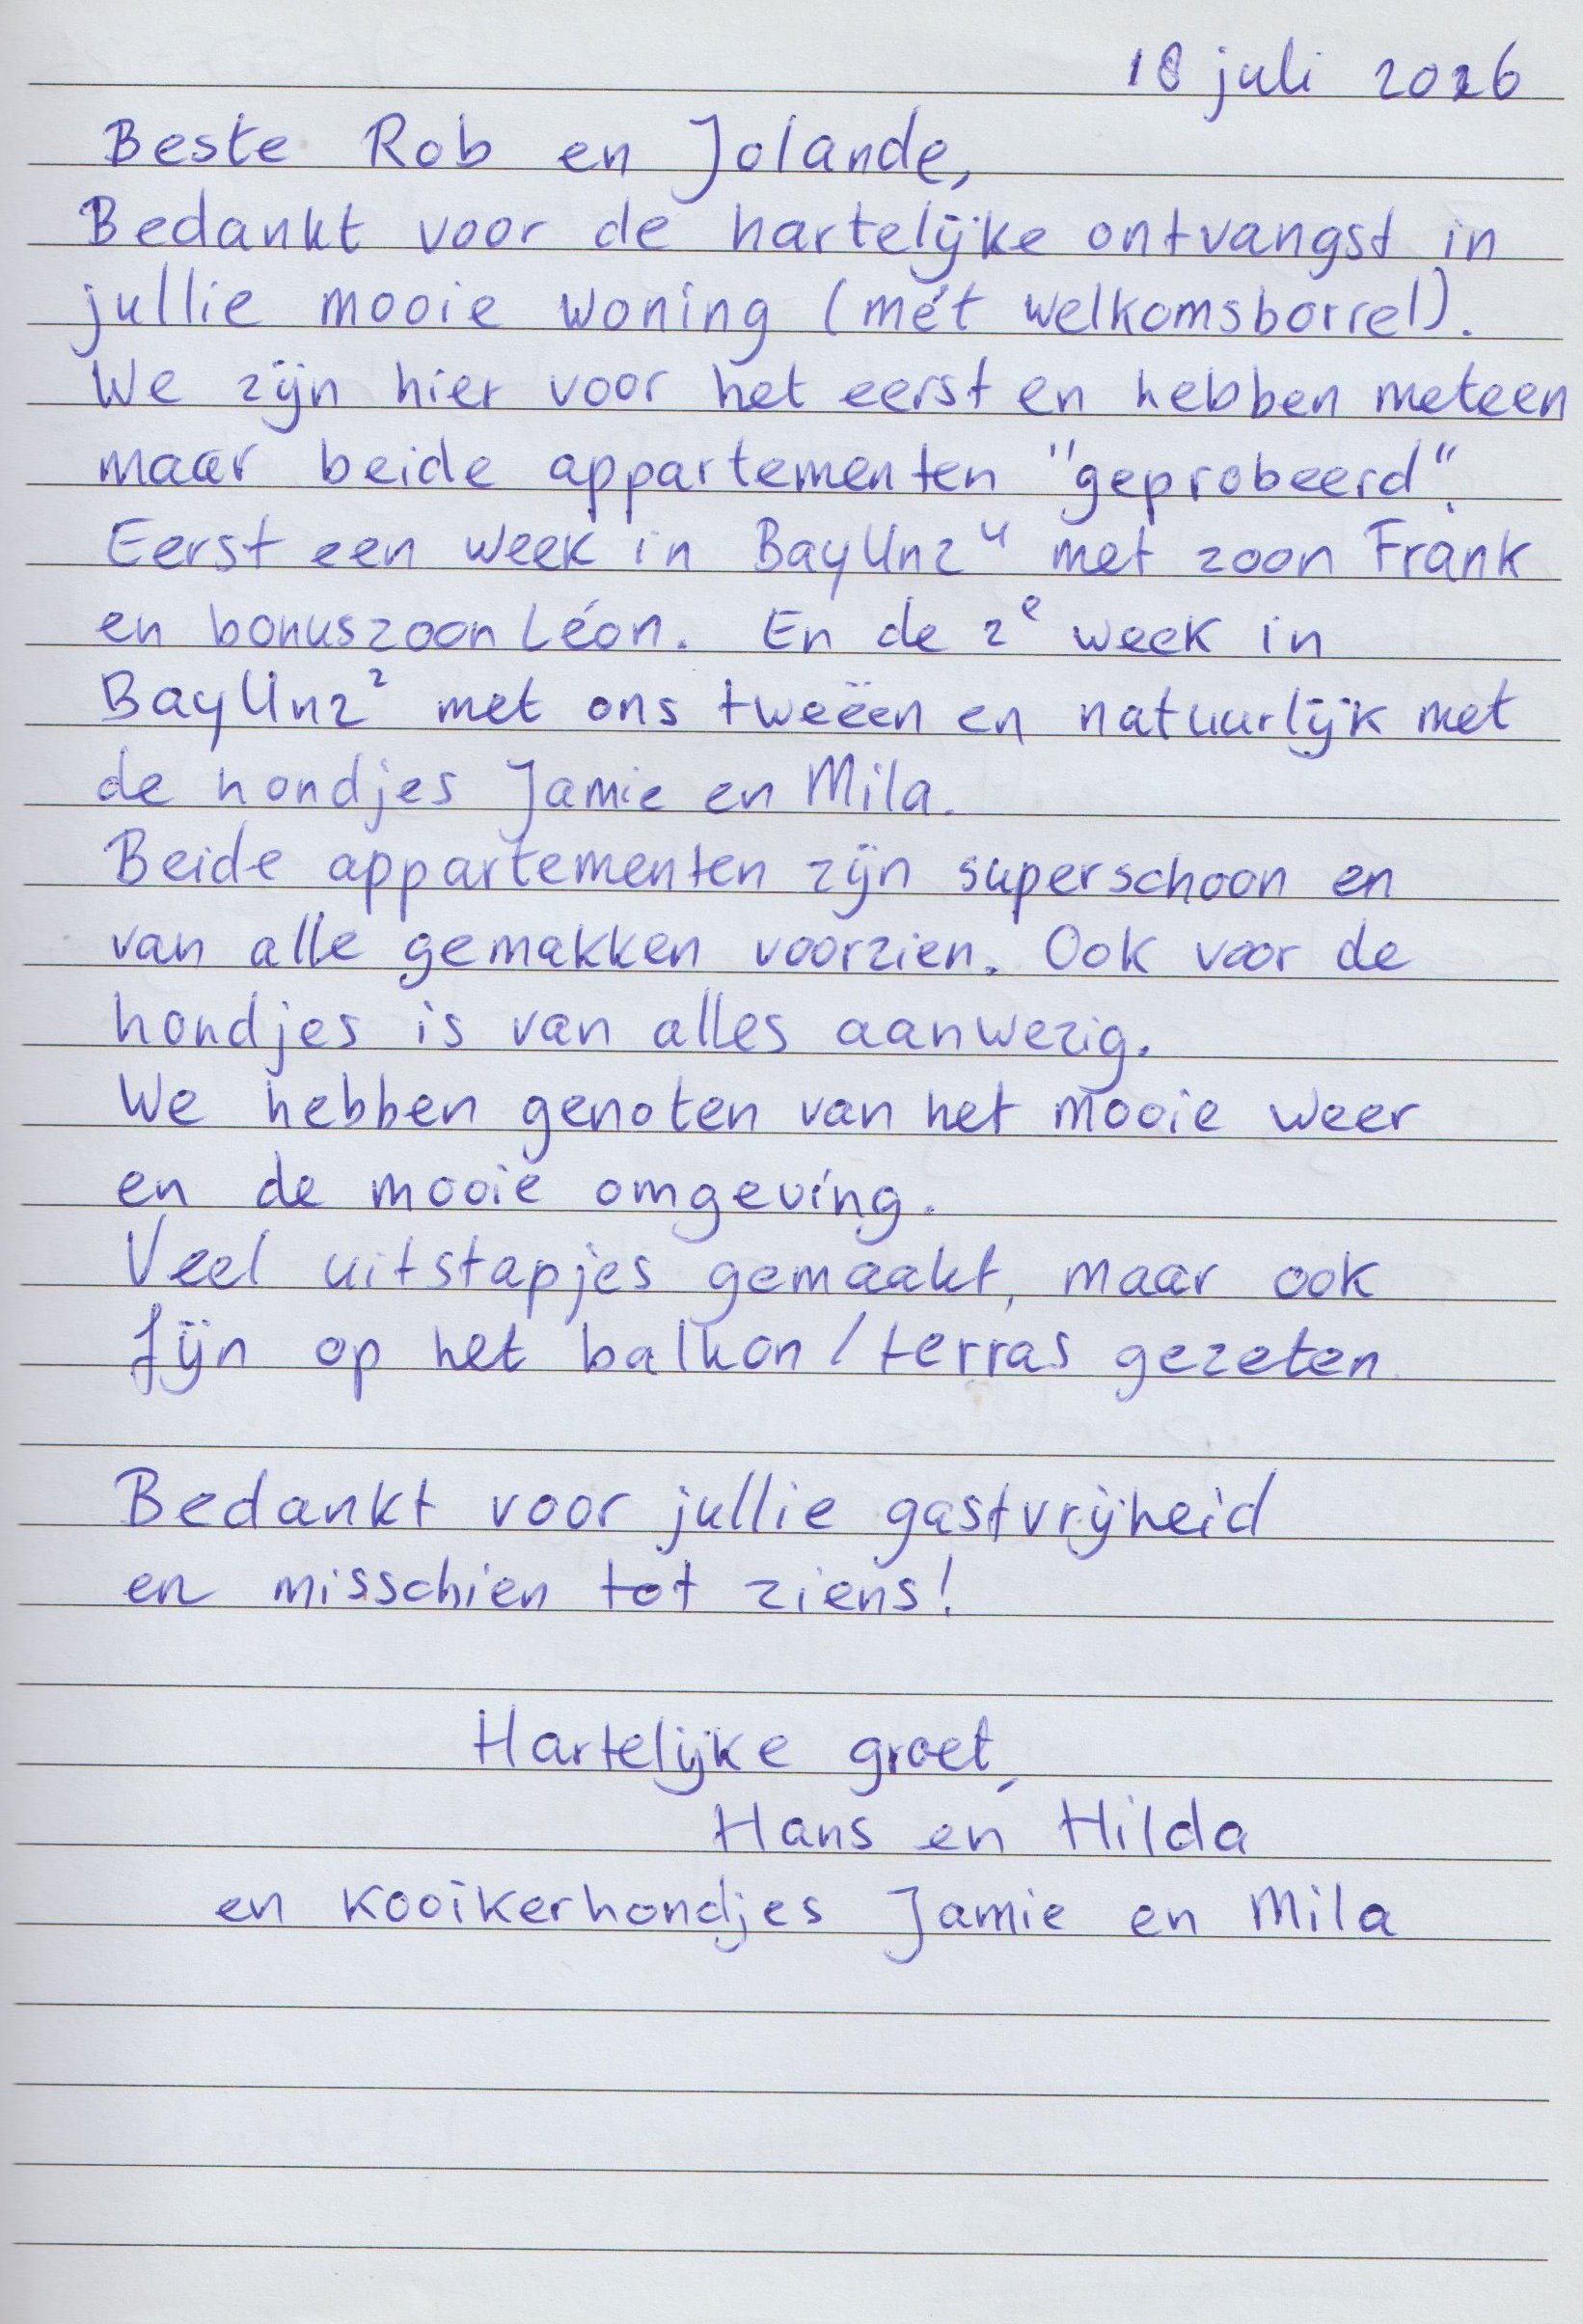 18 juli 2026
Beste Rob en Jolande,
Bedankt voor de hartelijke ontvangst in
jullie mooie woning (mét welkomsborrel).
We zijn hier voor het eerst en hebben meteen
maar beide appartementen "geprobeerd".
Eerst een week in BayUnz⁴ met zoon Frank
en bonuszoon Léon. En de 2e week in
BayUnz² met ons tweeën en natuurlijk met
de hondjes Jamie en Mila.
Beide appartementen zijn superschoon en
van alle gemakken voorzien. Ook voor de
hondjes is van alles aanwezig.
We hebben genoten van het mooie weer
en de mooie omgeving.
Veel uitstapjes gemaakt, maar ook
fijn op het balkon/terras gezeten.
Bedankt voor jullie gastvrijheid
en misschien tot ziens!
Hartelijke groet,
Hans en Hilda
en kooikerhondjes Jamie en Mila